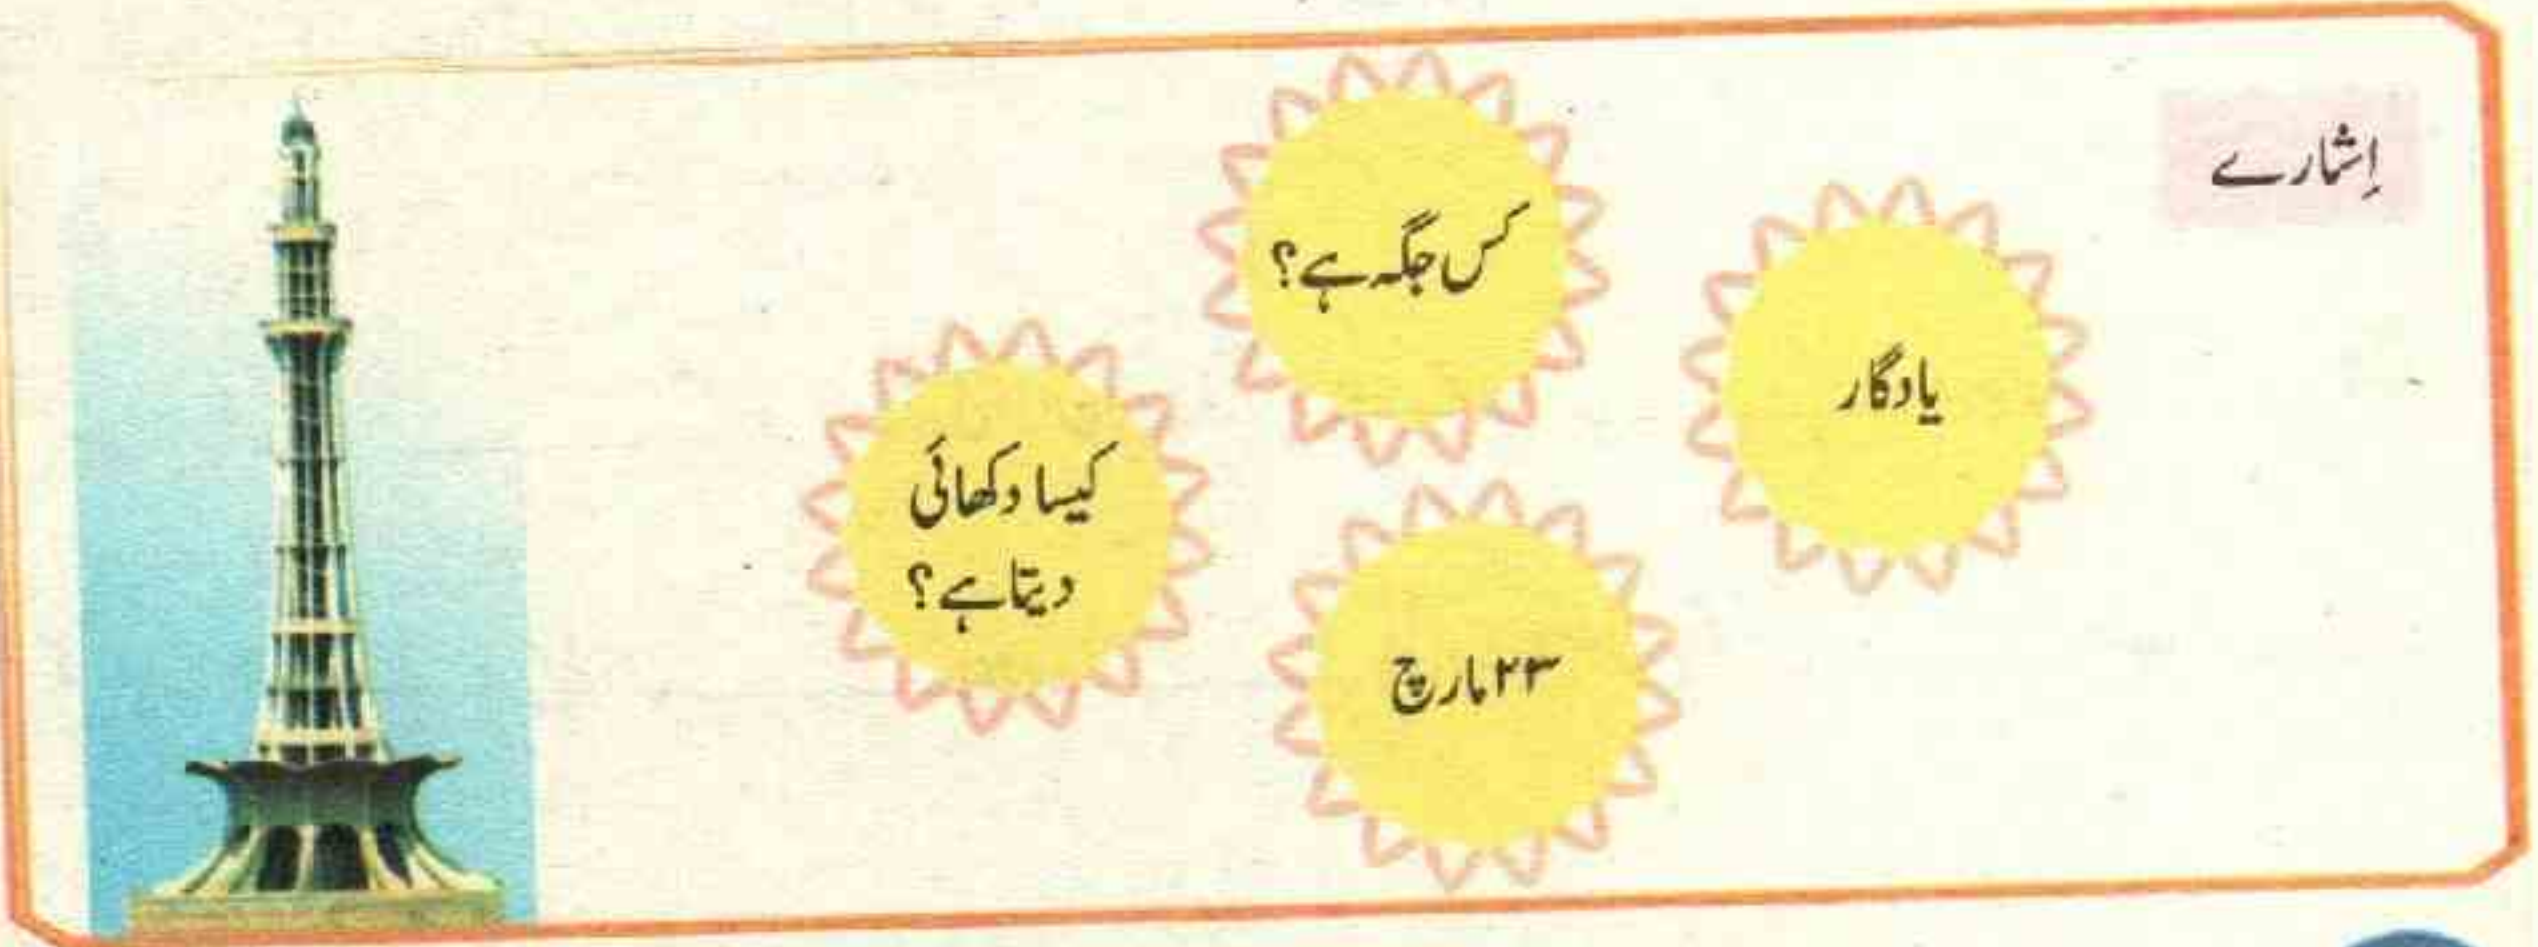 اِشارے
یادگار
کس جگہ ہے؟
۲۳ مارچ
کیسا دکھائی
دیتا ہے؟